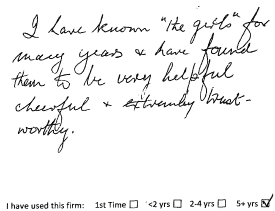 I have known "the girls" for
many years & have found
them to be very helpful
cheerful & extremely trust-
worthy.
I have used this firm: 1st Time ☐ <2 yrs ☐ 2-4 yrs ☐ 5+ yrs ☑